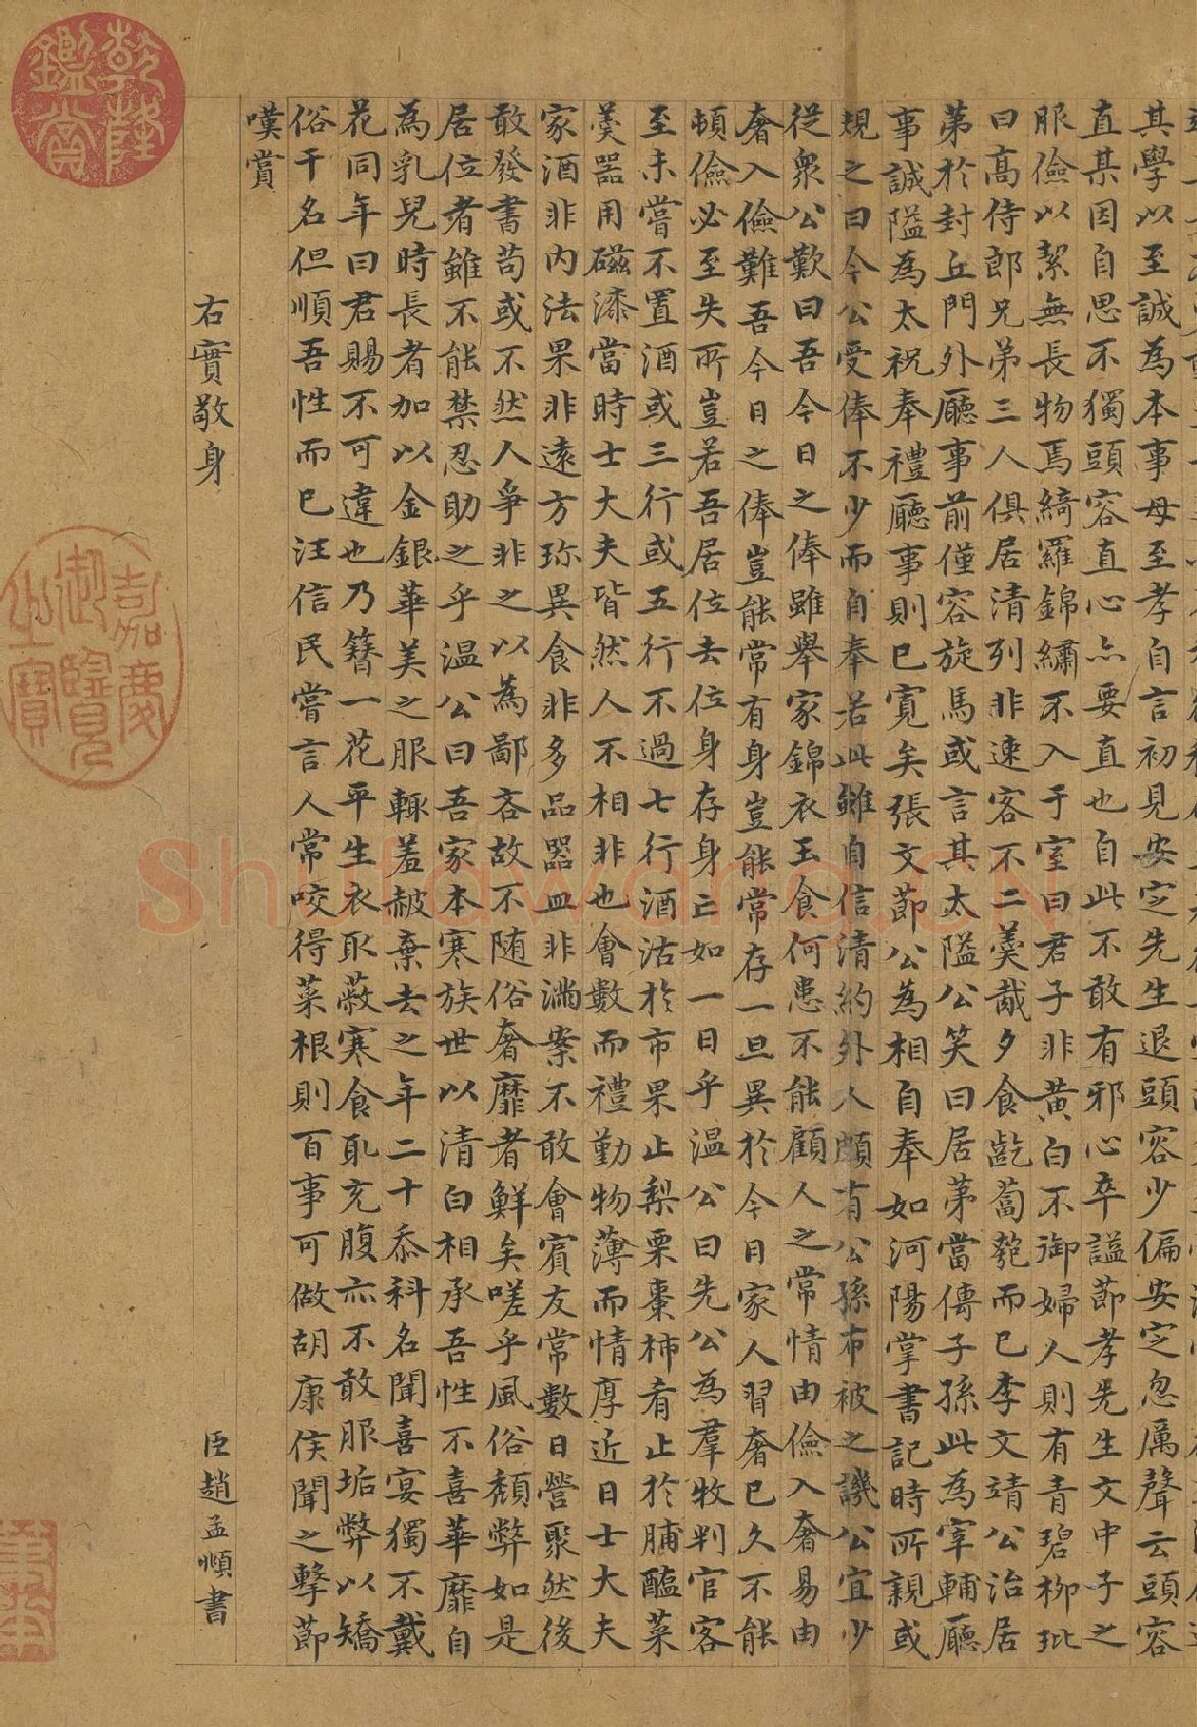 其學以至誠為本事母至孝自言初見安定先生退頭容少偏安定忽厲聲云頭容
直某因自思不獨頭容直心亦要直也自此不敢有邪心卒諡節孝先生文中子之
服儉以絜無長物焉綺羅錦繡不入于室曰君子非黃白不御婦人則有青碧柳玭
曰高侍郎兄弟三人俱居清列非速客不二羹胾夕食齕蔔匏而已李文靖公治居
第於封丘門外廳事前僅容旋馬或言其太隘公笑曰居第當傳子孫此為宰輔廳
事誠隘為太祝奉禮廳事則已寬矣張文節公為相自奉如河陽掌書記時所親或
規之曰今公受俸不少而自奉若此雖自信清約外人頗有公孫布被之譏公宜少
從衆公歎曰吾今日之俸雖舉家錦衣玉食何患不能顧人之常情由儉入奢易由
奢入儉難吾今日之俸豈能常有身豈能常存一旦異於今日家人習奢已久不能
頓儉必至失所豈若吾居位去位身存身亡如一日乎温公曰先公為羣牧判官客
至未嘗不置酒或三行或五行不過七行酒沽於市果止梨栗棗柿肴止於脯醢菜
羹器用磁漆當時士大夫皆然人不相非也會數而禮勤物薄而情厚近日士大夫
家酒非內法果非遠方珍異食非多品器皿非滿案不敢會賓友常數日營聚然後
敢發書苟或不然人爭非之以為鄙吝故不隨俗奢靡者鮮矣嗟乎風俗頹弊如是
居位者雖不能禁忍助之乎温公曰吾家本寒族世以清白相承吾性不喜華靡自
為乳兒時長者加以金銀華美之服輒羞赧棄去之年二十忝科名聞喜宴獨不戴
花同年曰君賜不可違也乃簪一花平生衣取蔽寒食取充腹亦不敢服垢弊以矯
俗干名但順吾性而已汪信民嘗言人常咬得菜根則百事可做胡康侯聞之擊節
嘆賞
右實敬身
臣趙孟頫書
乾隆鑑賞
嘉慶御覽之寶
Shufawang.CN